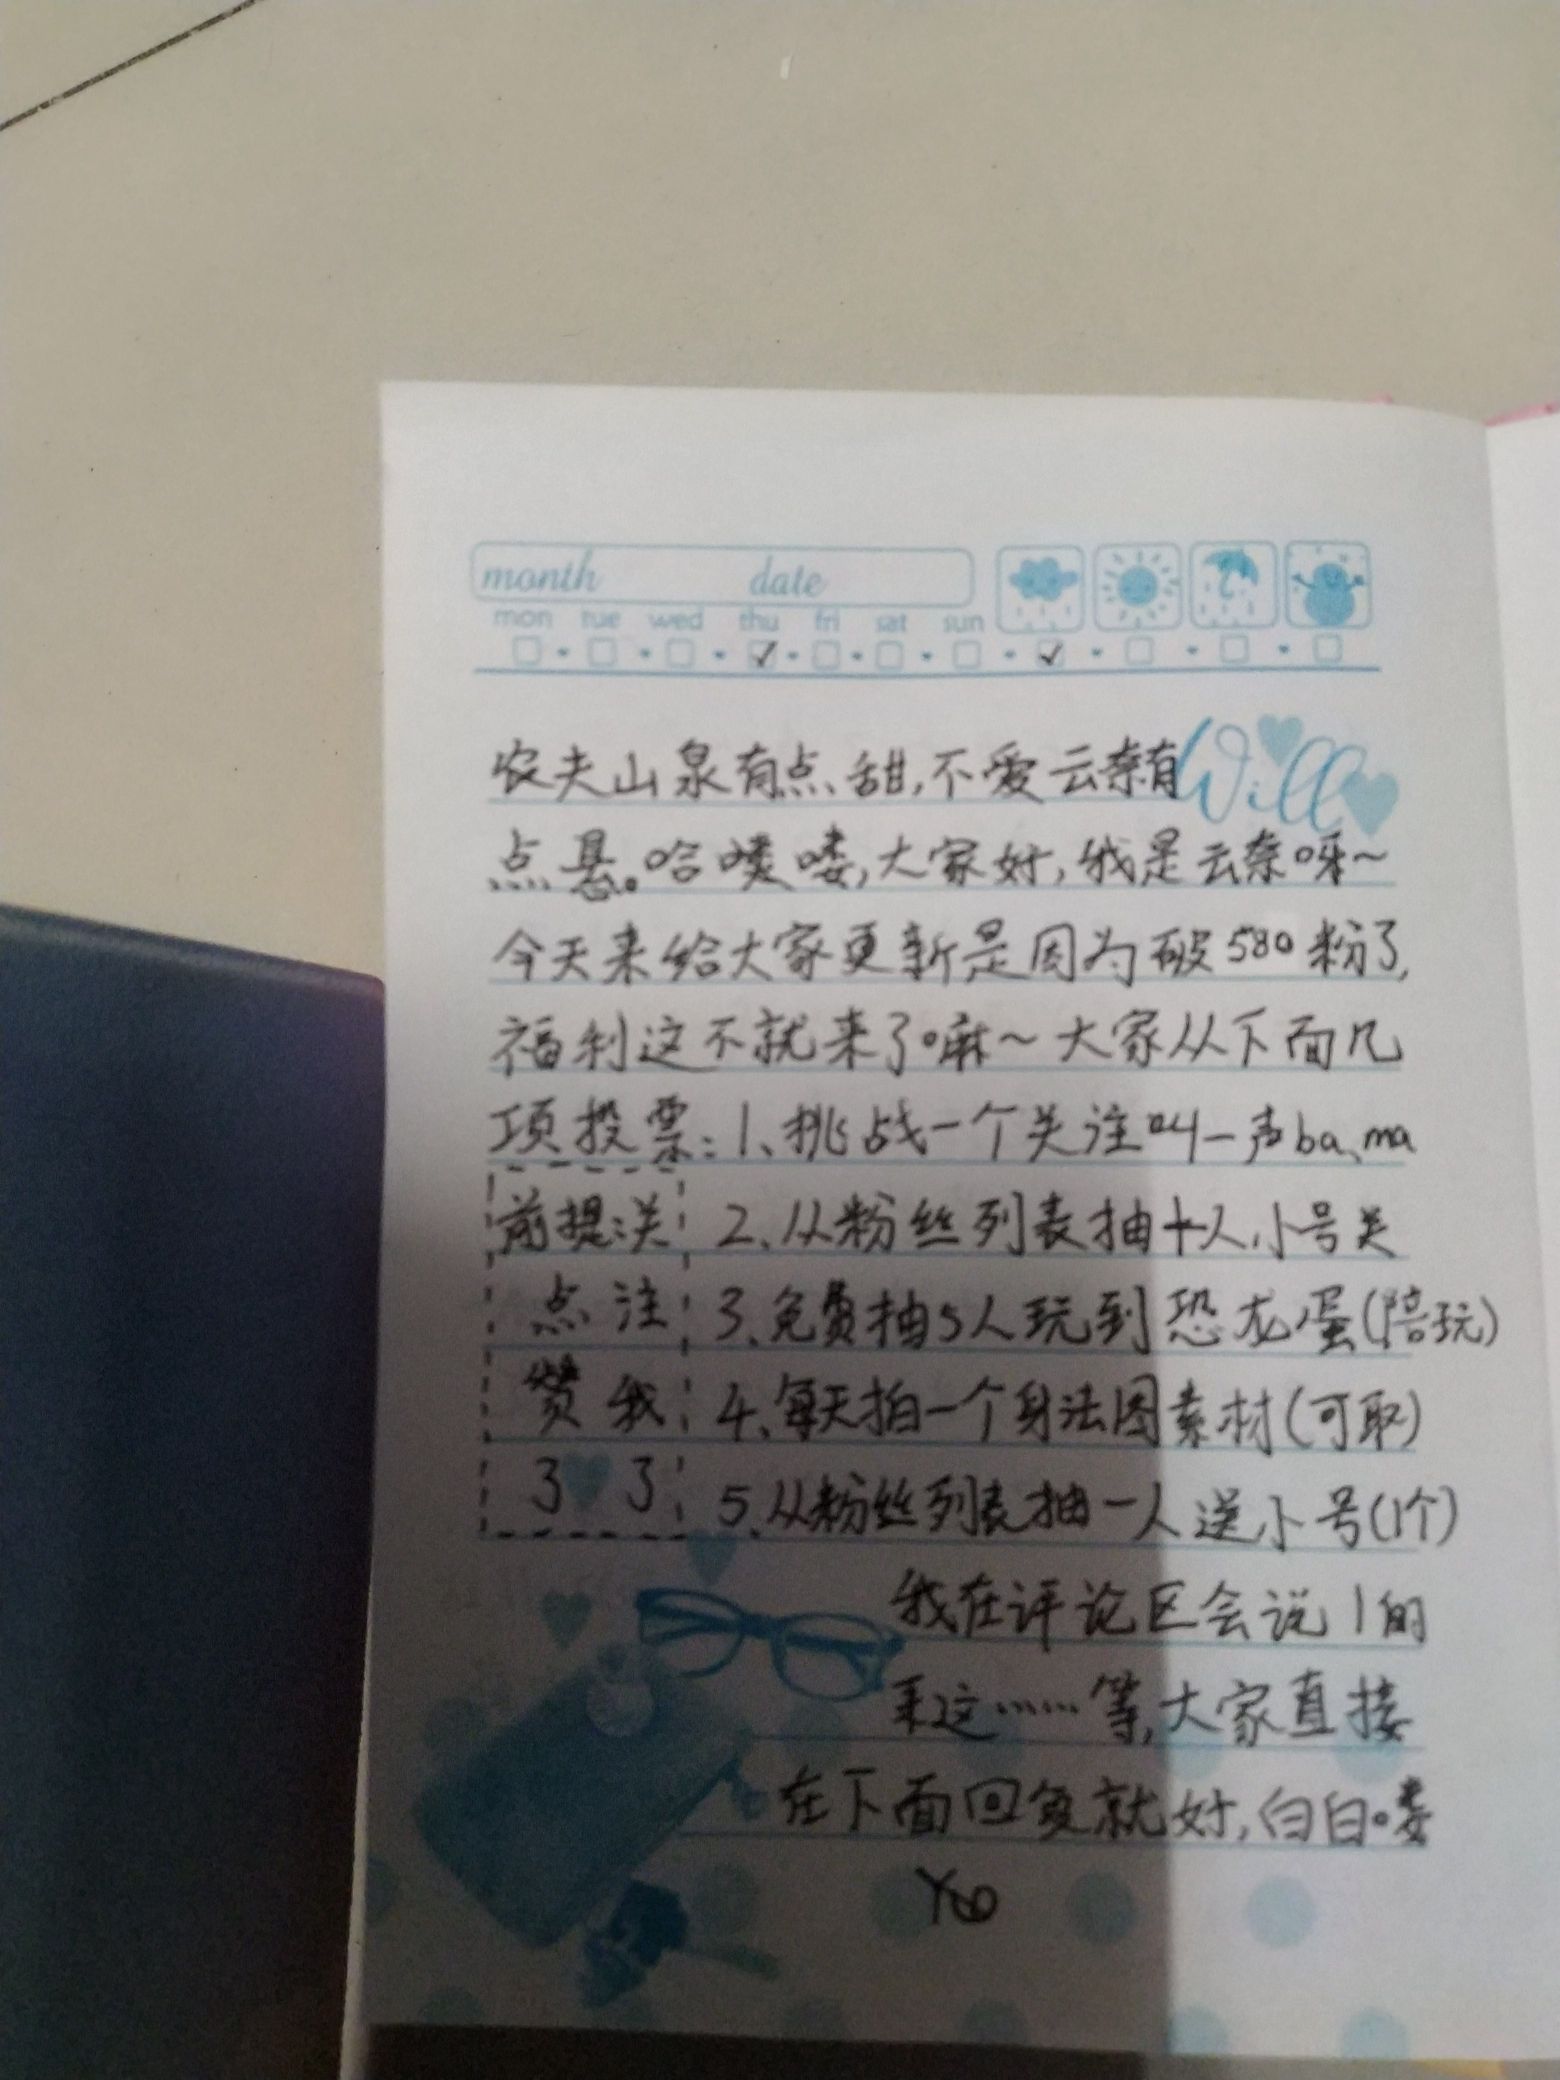 month date
mon tue wed thu fri sat sun
农夫山泉有点甜,不爱云柰有
Will
点悬。哈喽喽,大家好,我是云柰呀~
今天来给大家更新是因为破580粉了,
福利这不就来了嘛~大家从下面几
项投票:1、挑战一个关注叫一声ba、ma
前提:关 2、从粉丝列表抽十人小号关
点注 3、免费抽5人玩到恐龙蛋(陪玩)
赞我 4、每天拍一个身法图素材(可取)
了 了 5、从粉丝列表抽一人送小号(1个)
我在评论区会说1的
来这……等,大家直接
在下面回复就好,白白喽